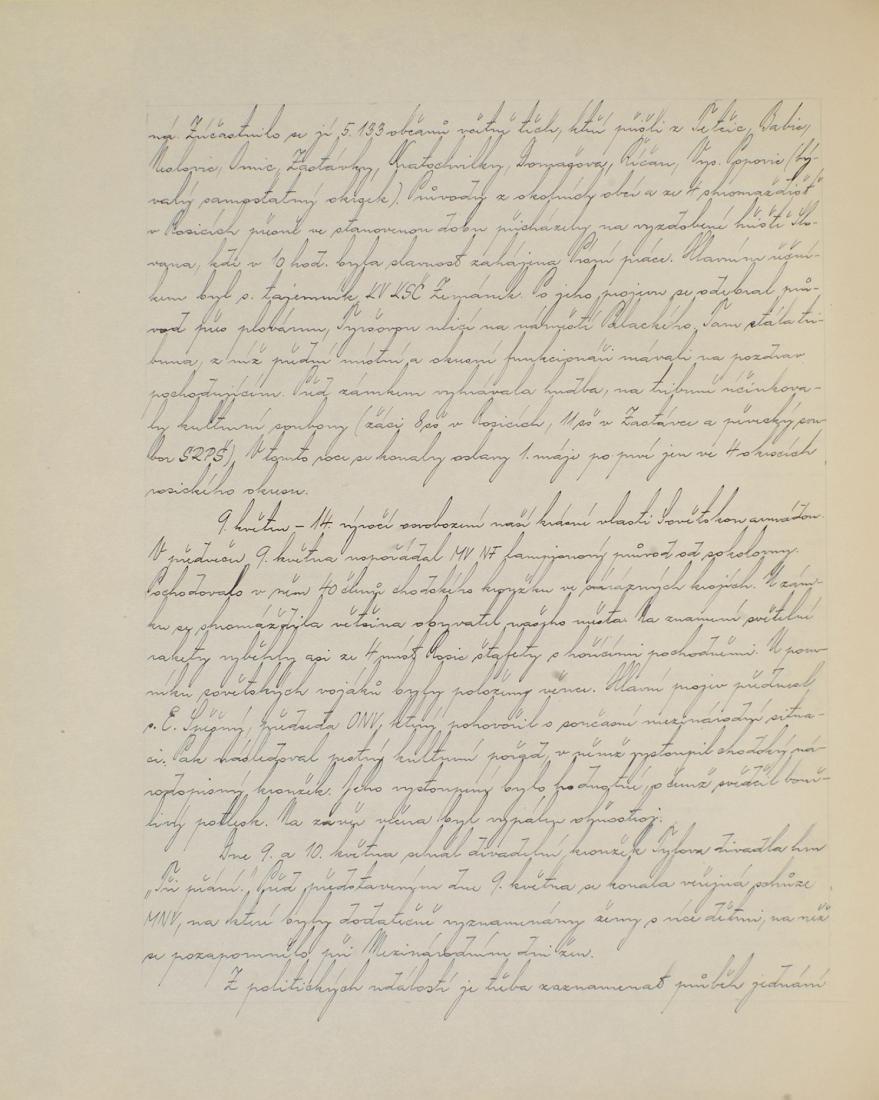 ná. Zúčastnilo se jí 5.133 občanů včetně těch, kteří přišli z Tetčic, Babic,
Neslovic, Omic, Zastávky, Kratochvilky, Domašova, Říčan, Vys. Popovic (bý-
valý samostatný okrsek). Průvody z okolních obcí a ze 4 shromaždišť
v Rosicích přesně ve stanovenou dobu přicházely na vyzdobené hřiště Slo-
vana, kde v 10 hod. byla slavnost zahájena Písní práce. Hlavním řeční-
kem byl s. tajemník KV KSČ Zemánek. Po jeho projevu se odebral prů-
vod přes plovárnu, Tyršovou ulicí na náměstí Palackého. Tam stála tri-
buna, z níž přední místní a okresní funkcionáři mávali na pozdrav
pochodujícím. Před zámkem vyhrávala hudba, na tribuně účinkova-
ly kulturní soubory (žáci 8sš v Rosicích, 11sš v Zastávce a pěvecký sou-
bor SRPŠ). V tomto roce se konaly oslavy 1. máje po prvé jen ve 4 obcích
rosického okresu.
9. květen – 14. výročí osvobození naší krásné vlasti Sovětskou armádou.
V předvečer 9. května uspořádal MV NF lampionový průvod od sokolovny.
Pochodovalo v něm 40 členů chodského kroužku ve svérázných krojích. U zám-
ku se shromáždila většina obyvatel našeho města. Na znamení světelné
rakety vyběhly asi ze 4 míst Rosic štafety s hořícími pochodněmi. U pom-
níku sovětských vojáků byly položeny věnce. Hlavní projev přednesl
s. E. Špěšný, předseda ONV, který pohovořil o současné mezinárodní situa-
ci. Pak následoval pestrý kulturní pořad, v němž vystoupil chodský ná-
rodopisný kroužek. Jeho vystoupení bylo hodnotné, o čemž svědčil bouř-
livý potlesk. Na závěr večera byl vypálen ohňostroj.
Dne 9. a 10. května sehrál divadelní kroužek Tylova divadla hru
„Tři přání.“ Před představením dne 9. května se konala veřejná schůze
MNV, na které byly dodatečně vyznamenány ženy s více dětmi, na něž
se pozapomnělo při Mezinárodním dni žen.
Z politických událostí je třeba zaznamenat průběh jednání